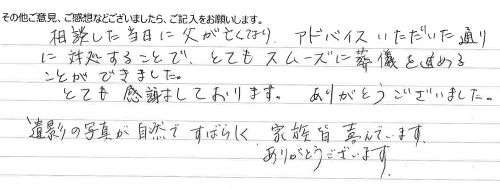 その他ご意見、ご感想などございましたら、ご記入をお願いします。
相談した当日に父が亡くなり、アドバイスいただいた通り
に対処することで、とてもスムーズに葬儀を進める
ことができました。
とても感謝しております。ありがとうございました。
遺影の写真が自然ですばらしく、家族皆喜んでいます。
ありがとうございます。